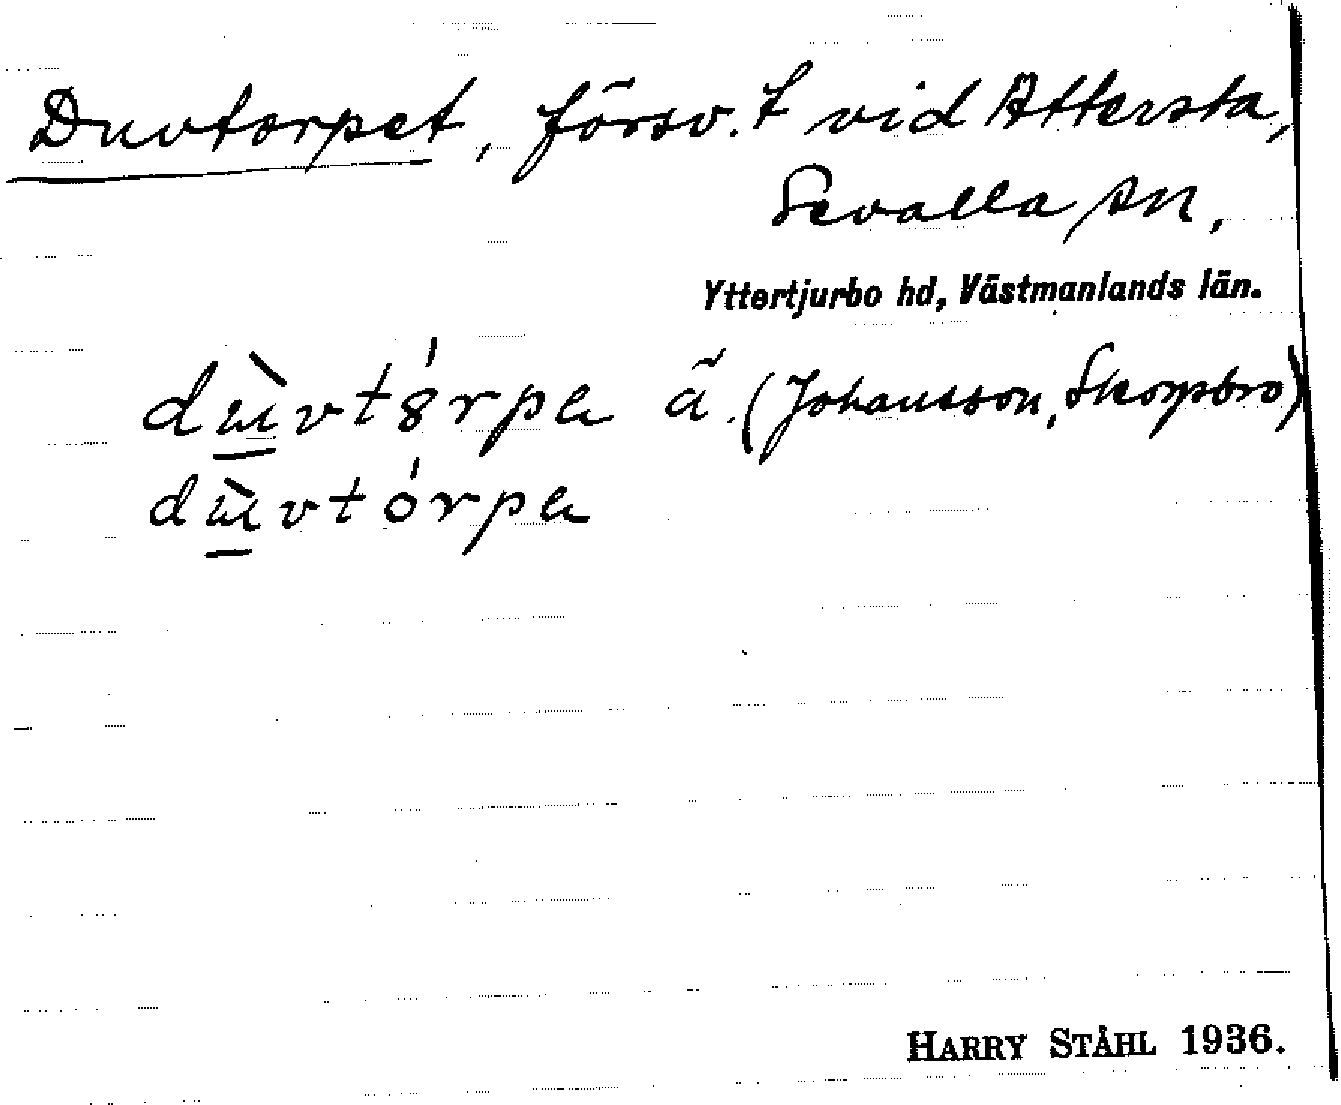 Duvtorpet, försv. t vid Attersta,
Sevalla sn,
Yttertjurbo hd, Västmanlands län.
dùvtȣ́rpa ã. (Johansson, Skorpbro)
dùvtórpa
HARRY STÅHL 1936.